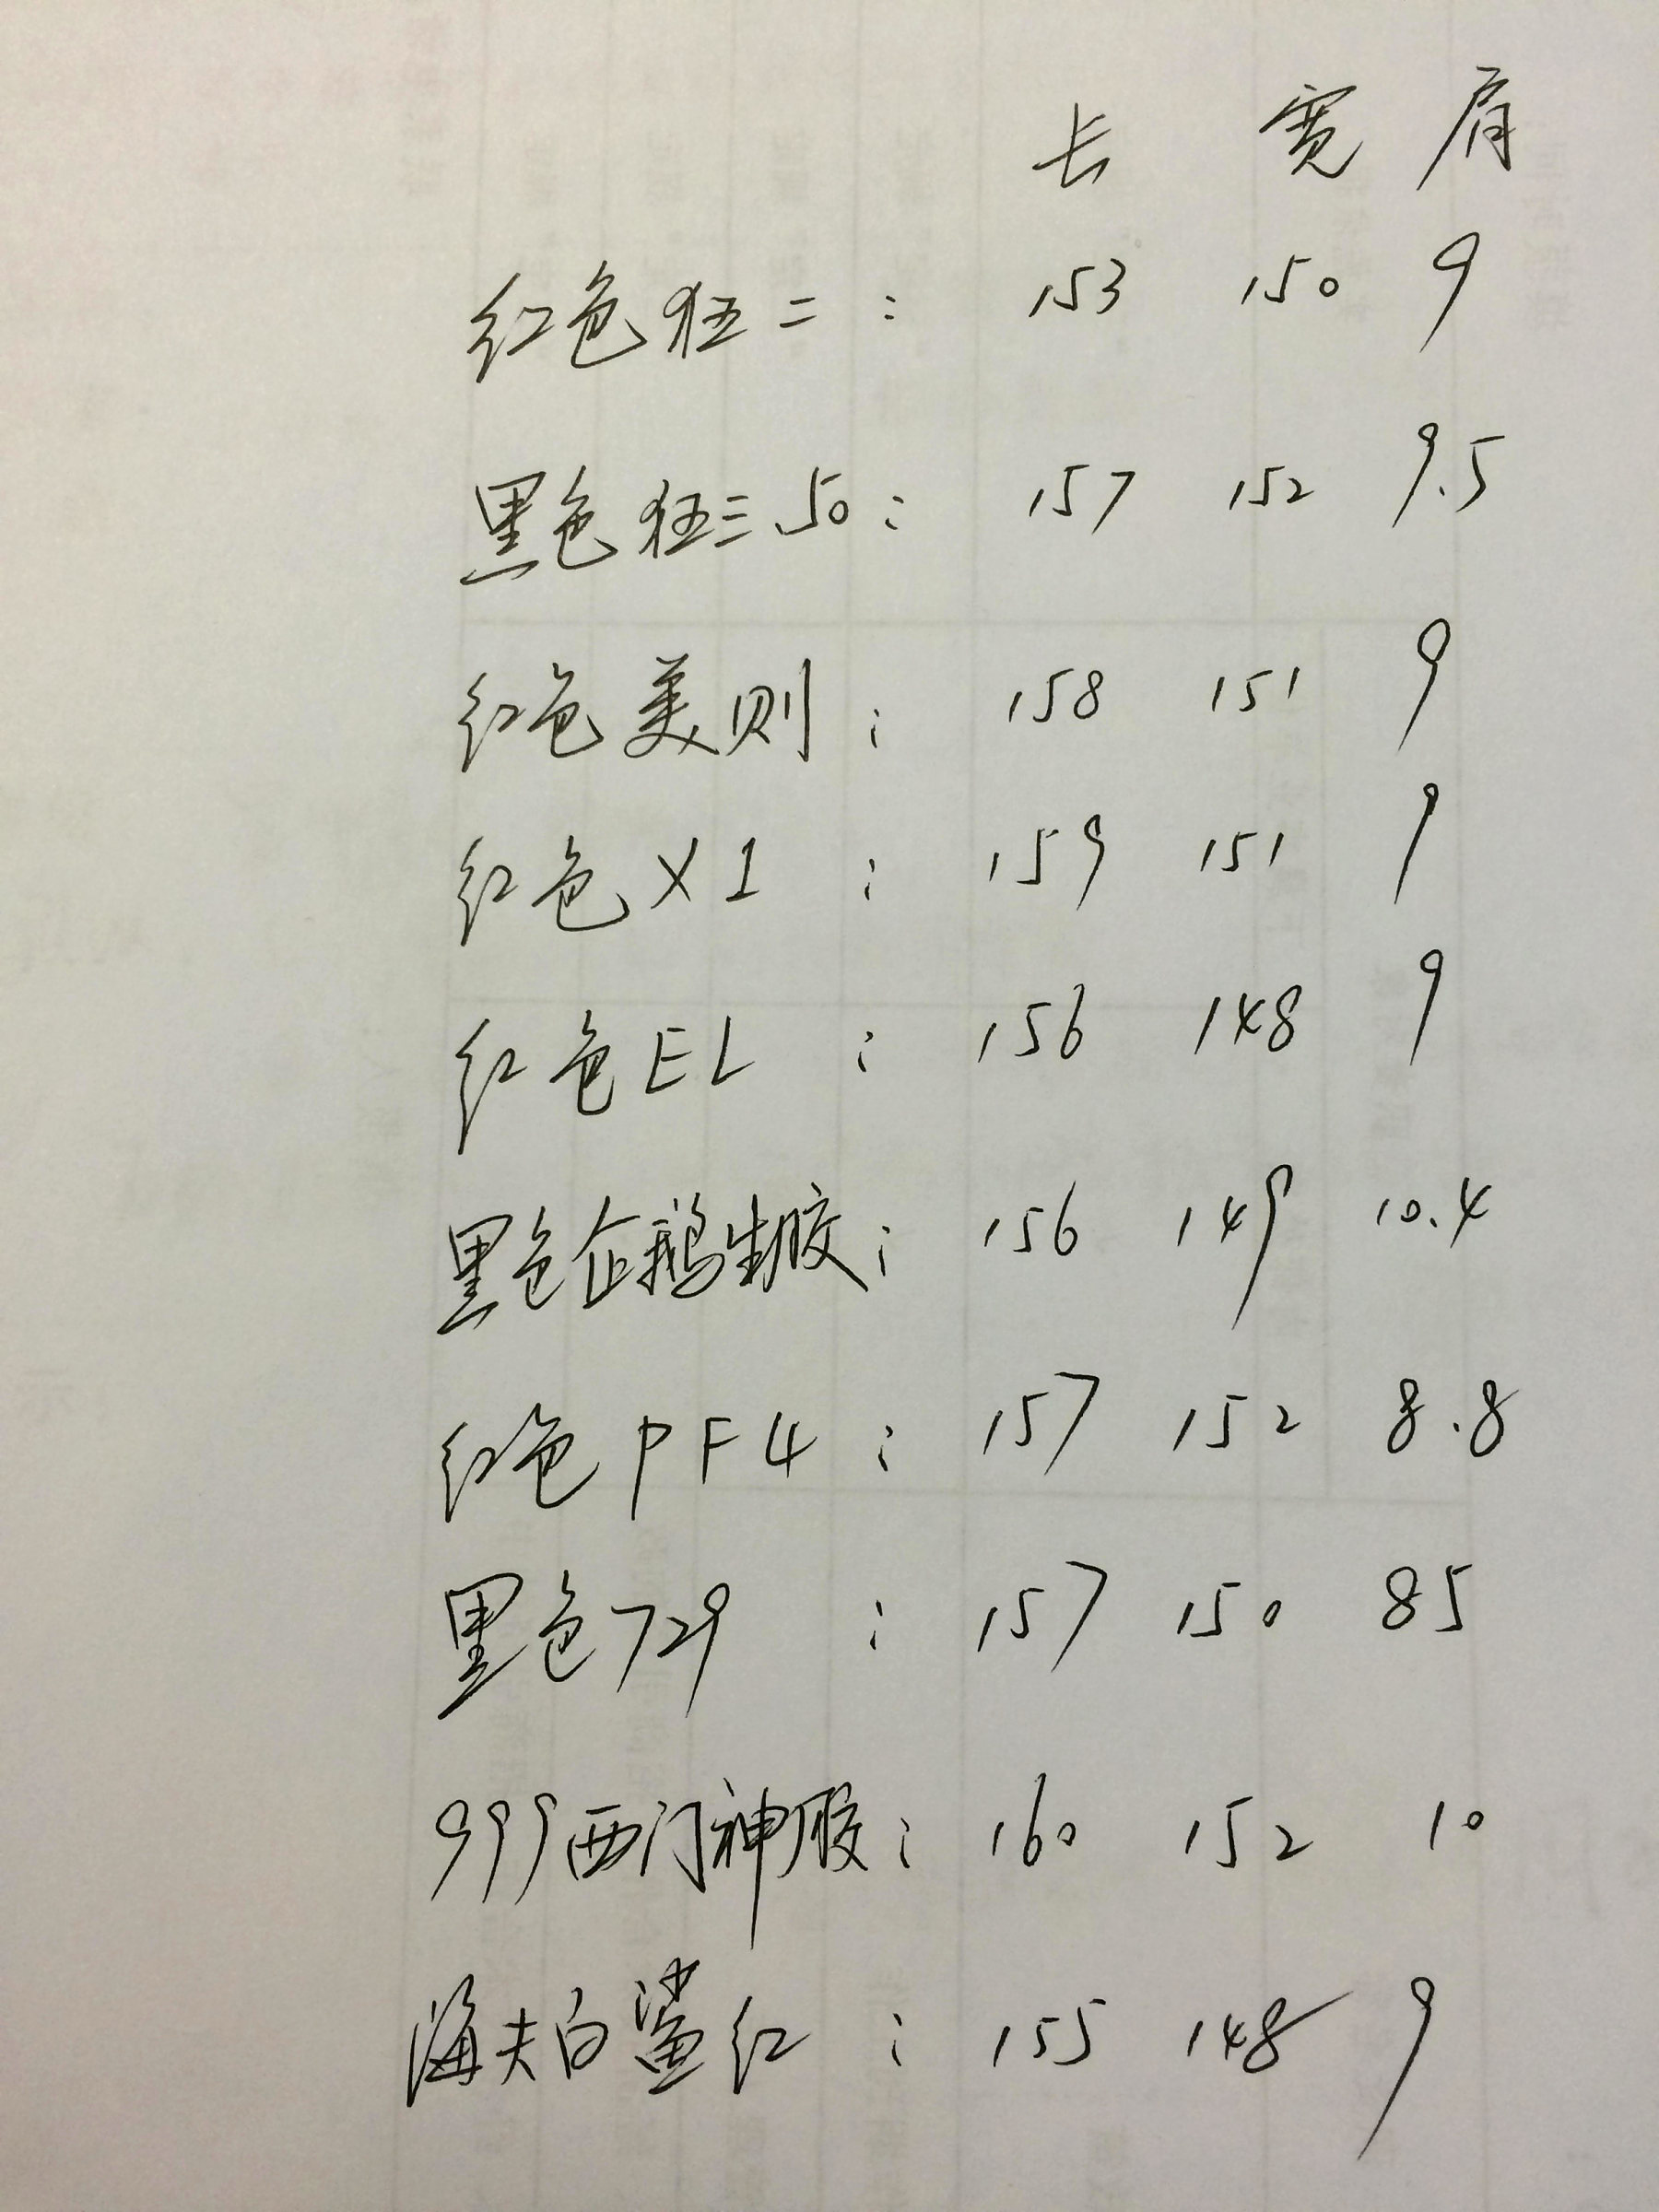 长 宽 肩
红色狂二： 153 150 9
黑色狂三50： 157 152 9.5
红色美则： 158 151 9
红色X1： 159 151 9
红色EL： 156 148 9
黑色企鹅生胶： 156 149 10.4
红色PF4： 157 152 8.8
黑色729： 157 150 85
999西门神胶： 160 152 10
海夫白鲨红： 155 148 9